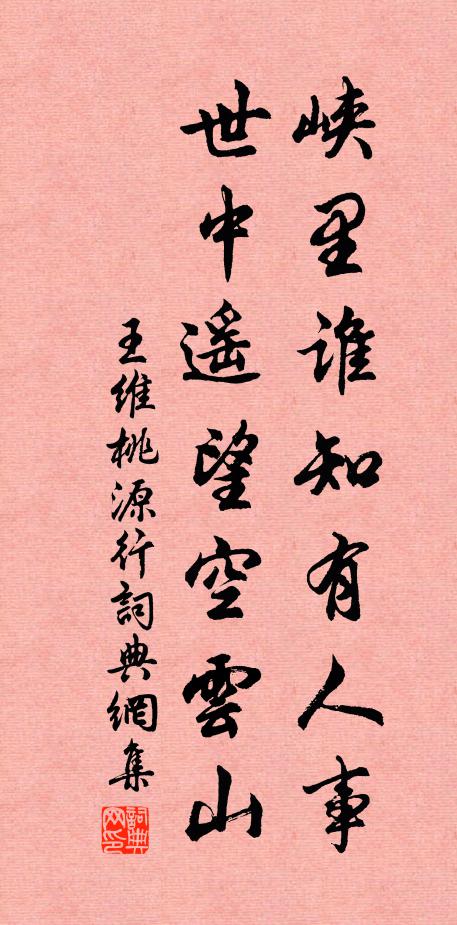 峡里谁知有人事
世中遥望空雲山
王维桃源行詞典網集
詞典网印